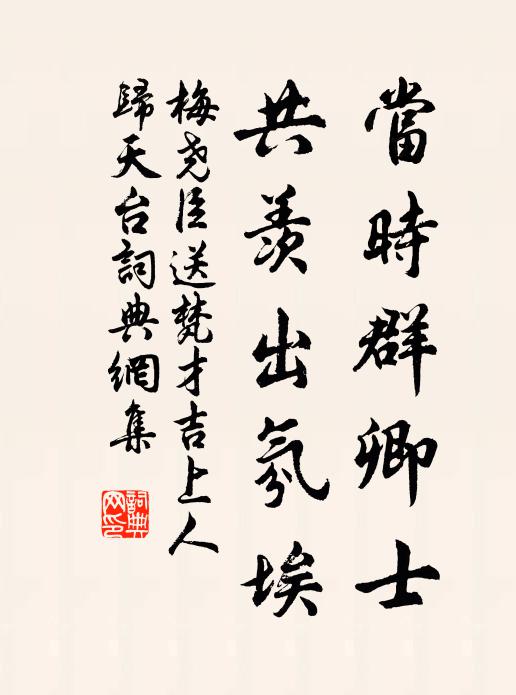 當時群卿士
共羨出氛埃
梅尧臣送梵才吉上人
歸天台詞典網集
詞典網印